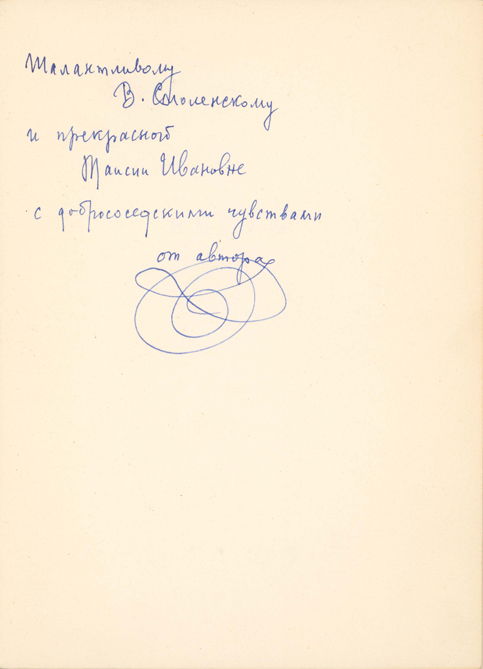 Талантливому
В. Смоленскому
и прекрасной
Таисии Ивановне
с добрососедскими чувствами
от автора